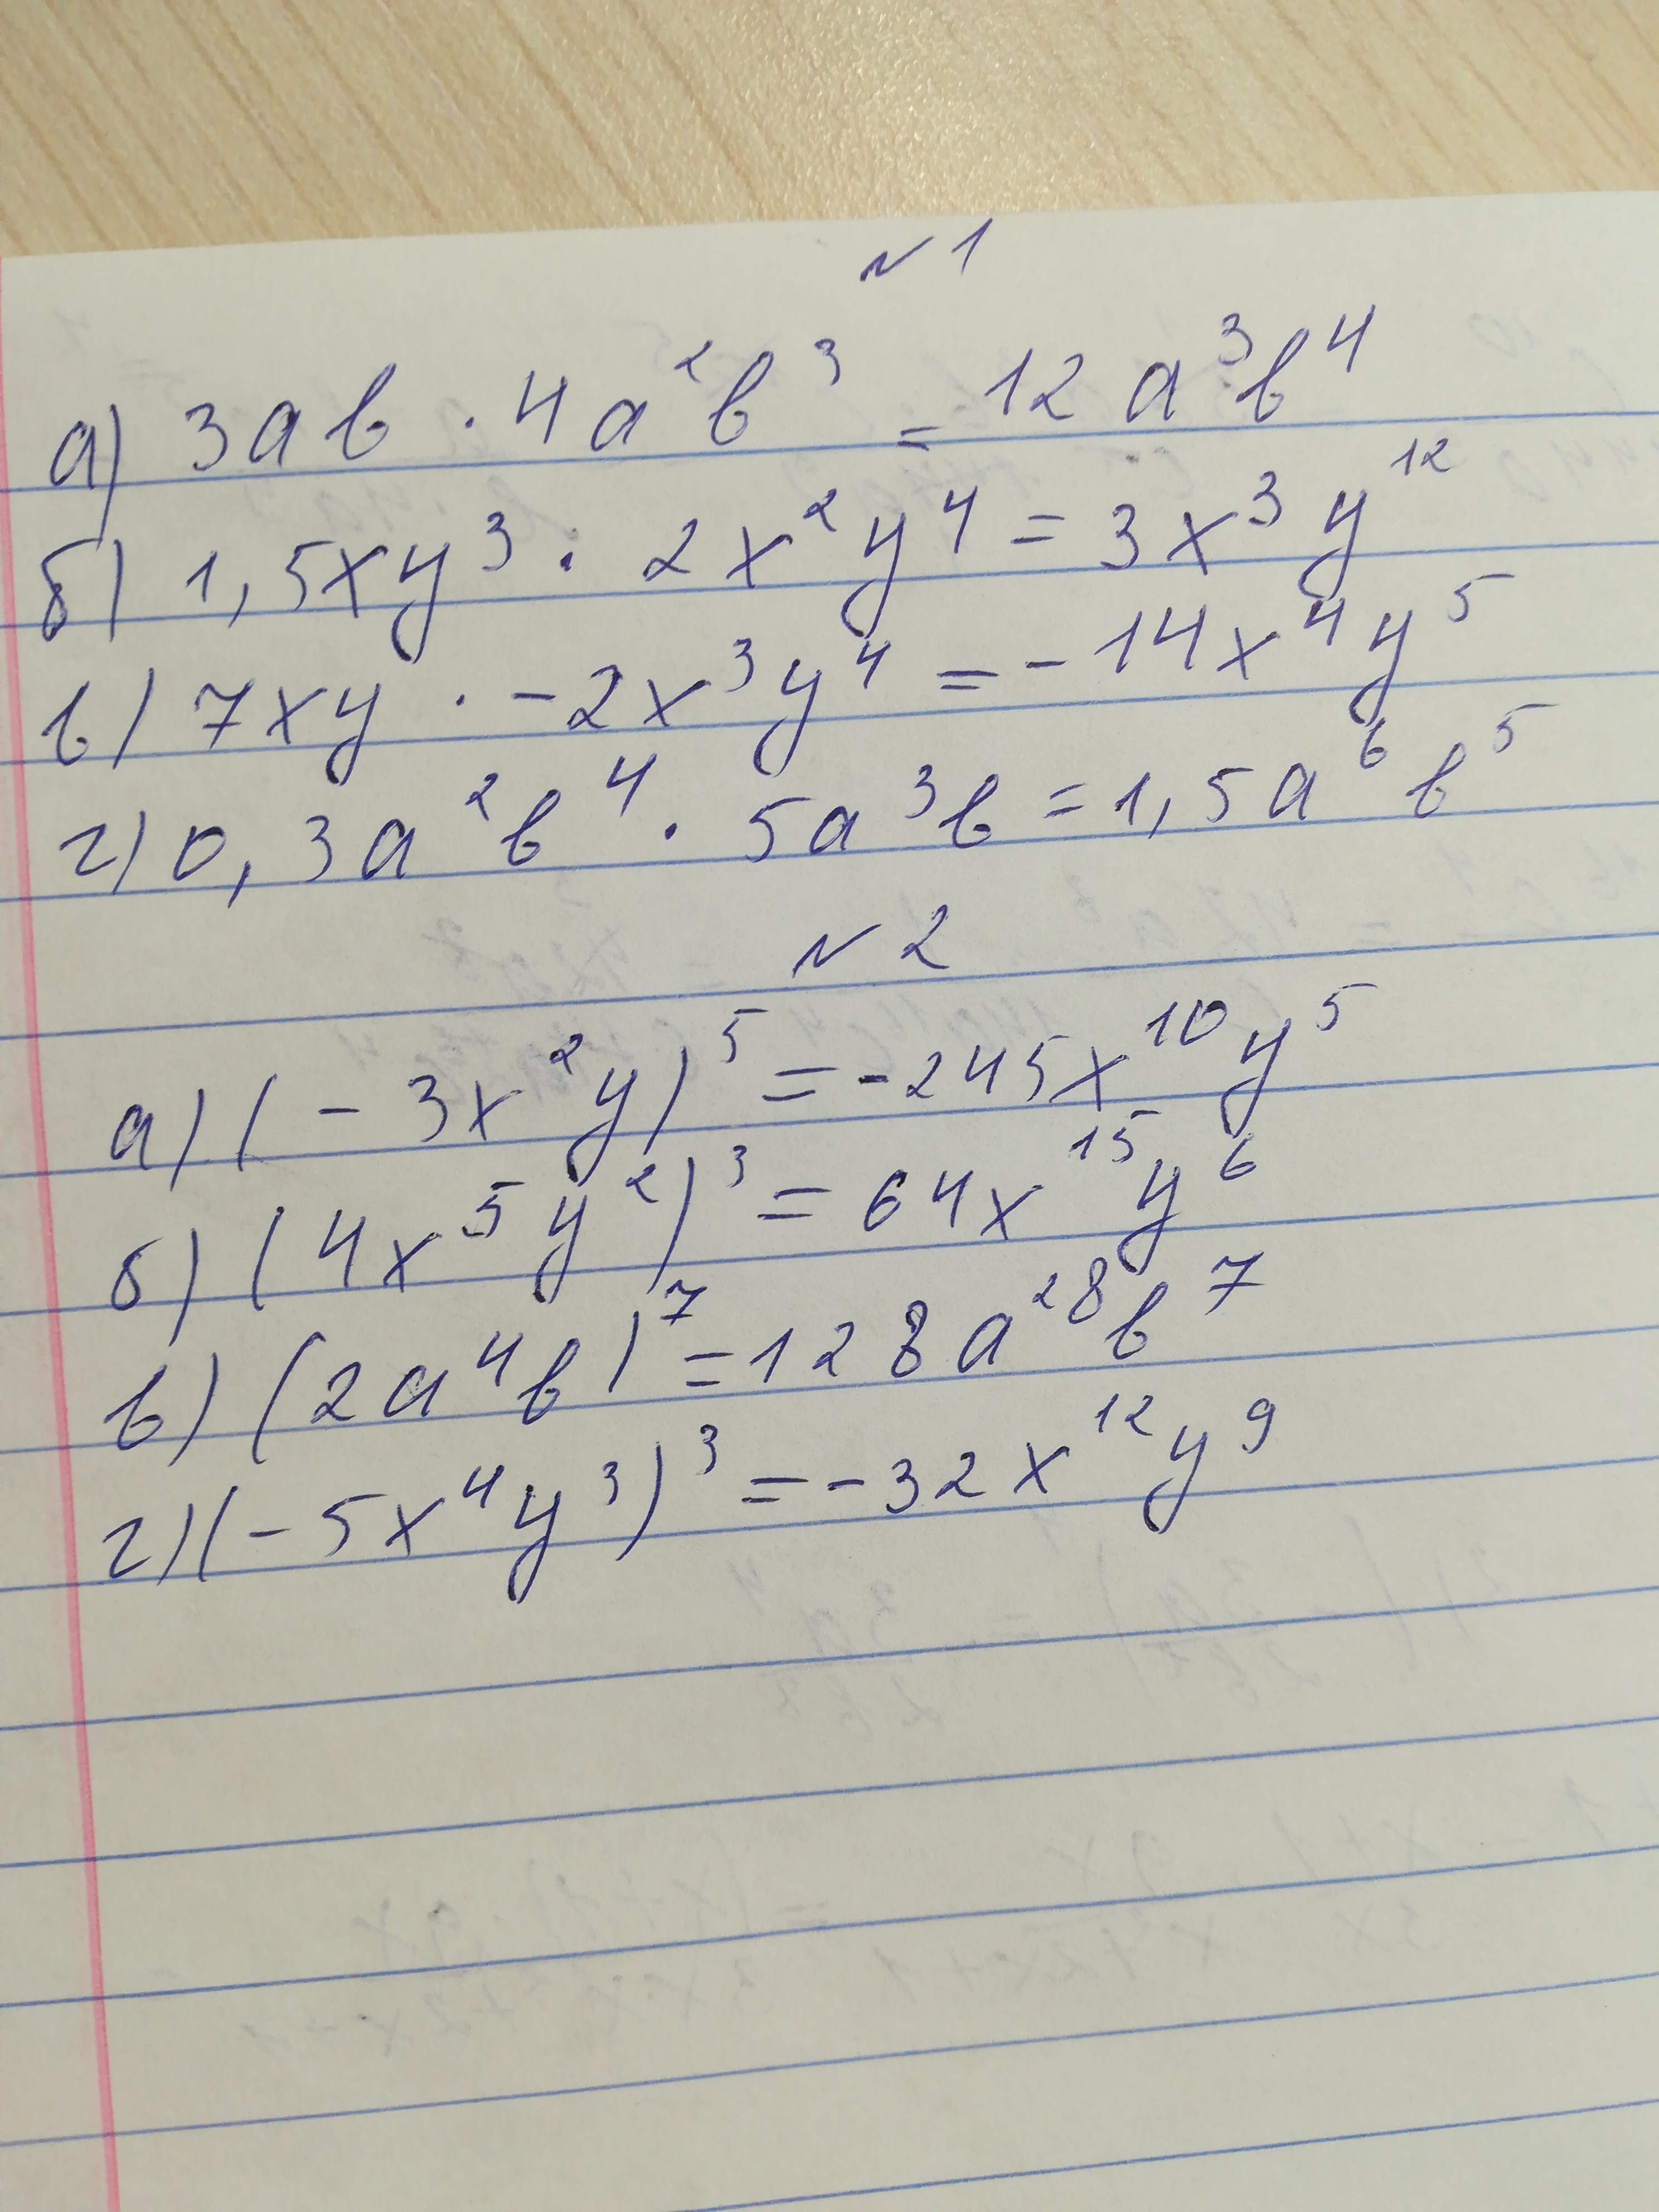 №1
а) 3ab · 4a²b³ = 12a³b⁴
б) 1,5xy³ · 2x²y⁴ = 3x³y¹²
в) 7xy · -2x³y⁴ = -14x⁴y⁵
г) 0,3a²b⁴ · 5a³b = 1,5a⁶b⁵
№2
а) (-3x²y)⁵ = -245x¹⁰y⁵
б) (4x⁵y²)³ = 64x¹⁵y⁶
в) (2a⁴b)⁷ = 128a²⁸b⁷
г) (-5x⁴y³)³ = -32x¹²y⁹